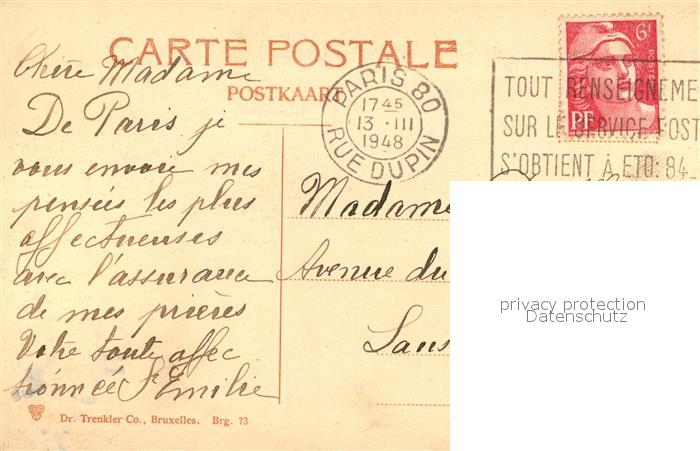 CARTE POSTALE
POSTKAART
Chère Madame
De Paris je
vous envoie mes
pensées les plus
affectueuses
avec l'assurance
de mes prières
Votre toute affec
tionnée Sr Emilie
PARIS 80
1745
13 · III
1948
RUE DUPIN
6F
POSTES
RF
TOUT RENSEIGNEME
SUR LE SERVICE POST
S'OBTIENT À ETO: 84_
Madame
Avenue du
Laus
privacy protection
Datenschutz
Dr. Trenkler Co., Bruxelles. Brg. 73